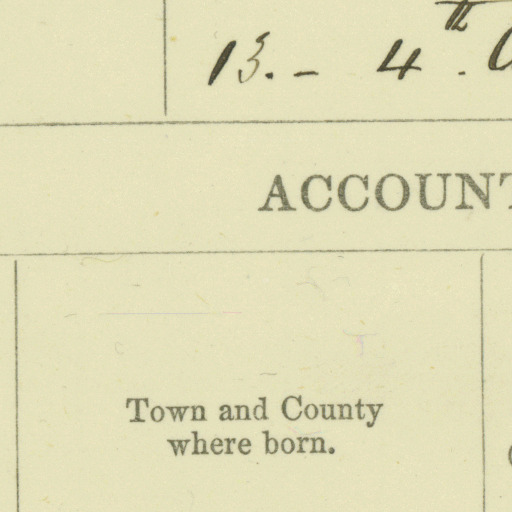 13. - 4th.
ACCOUNT
Town and County
where born.